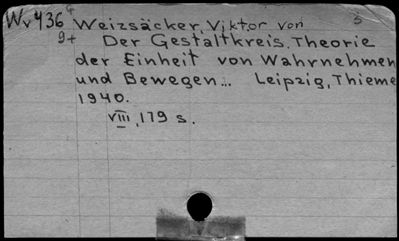 Wv436 Weizsäcker, Viktor von
9+ Der Gestaltkreis. Theorie
der Einheit von Wahrnehmen
und Bewegen... Leipzig, Thieme
1940.
VIII, 179 s.